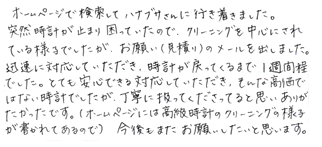 ホームページで検索してハナブサさんに行き着きました。
突然時計が止まり困っていたので、クリーニングを中心にされ
ている様子でしたが、お願い(見積り)のメールを出しました。
迅速に対応していただき、時計が戻ってくるまで1週間程
でした。とても安心できる対応していただき、そんな高価で
はない時計でしたが、丁寧に扱ってくださってると思いありが
たかったです。(ホームページには高級時計のクリーニングの様子
が書かれてあるので) 今後もまたお願いしたいと思います。